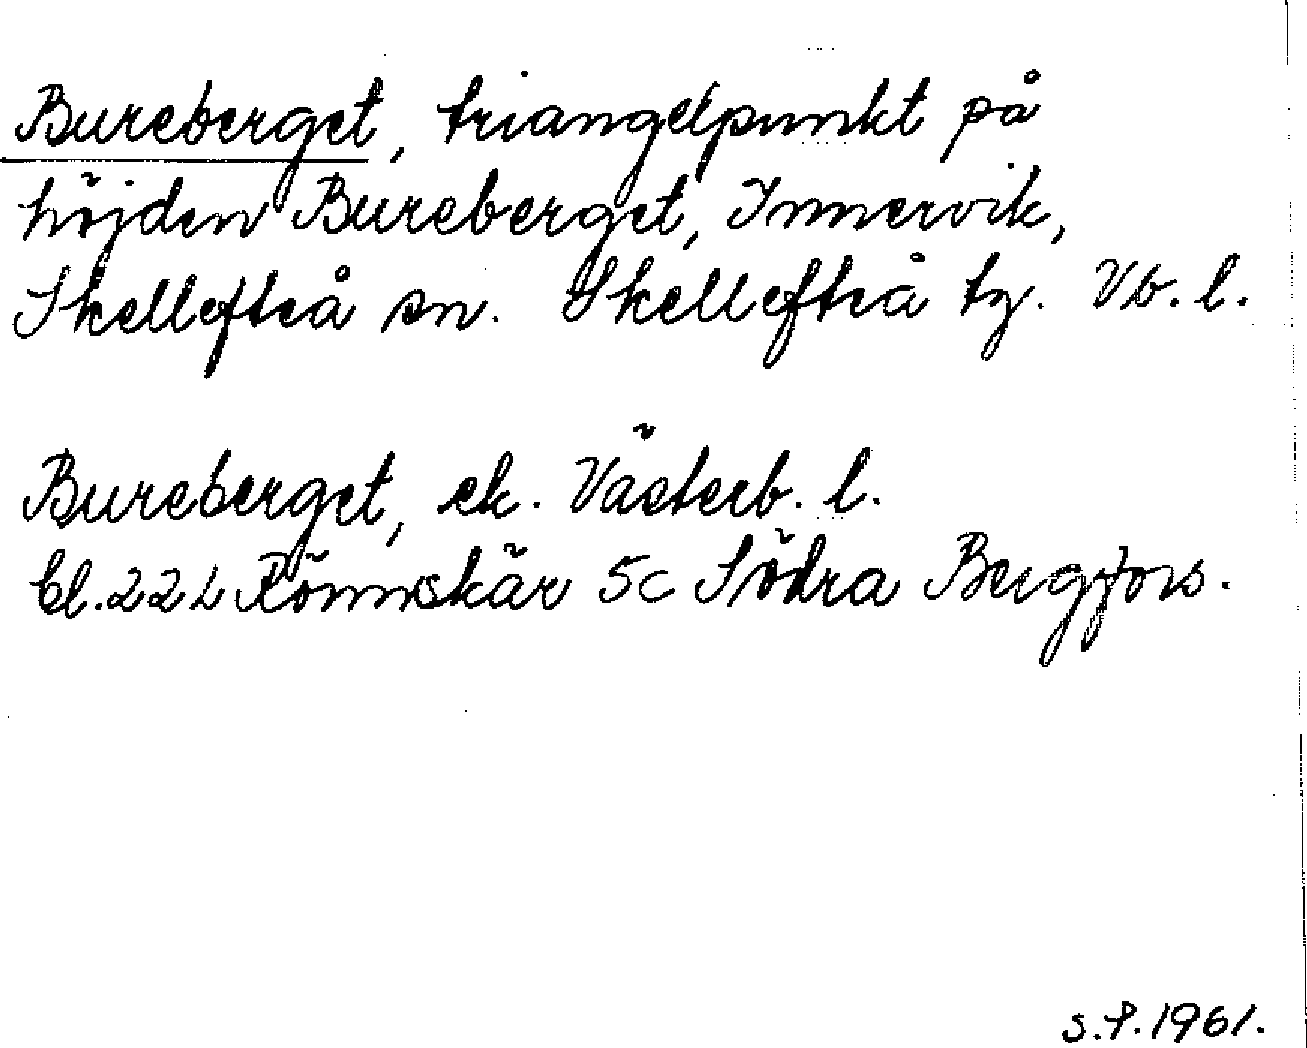 Bureberget, triangelpunkt på
höjden Bureberget, Innervik,
Skellefteå sn. Skellefteå tg. Vb. l.
Bureberget, ek. Västerb. l.
bl. 22 L Rönnskär 5c Södra Bergfors.
S.P. 1961.